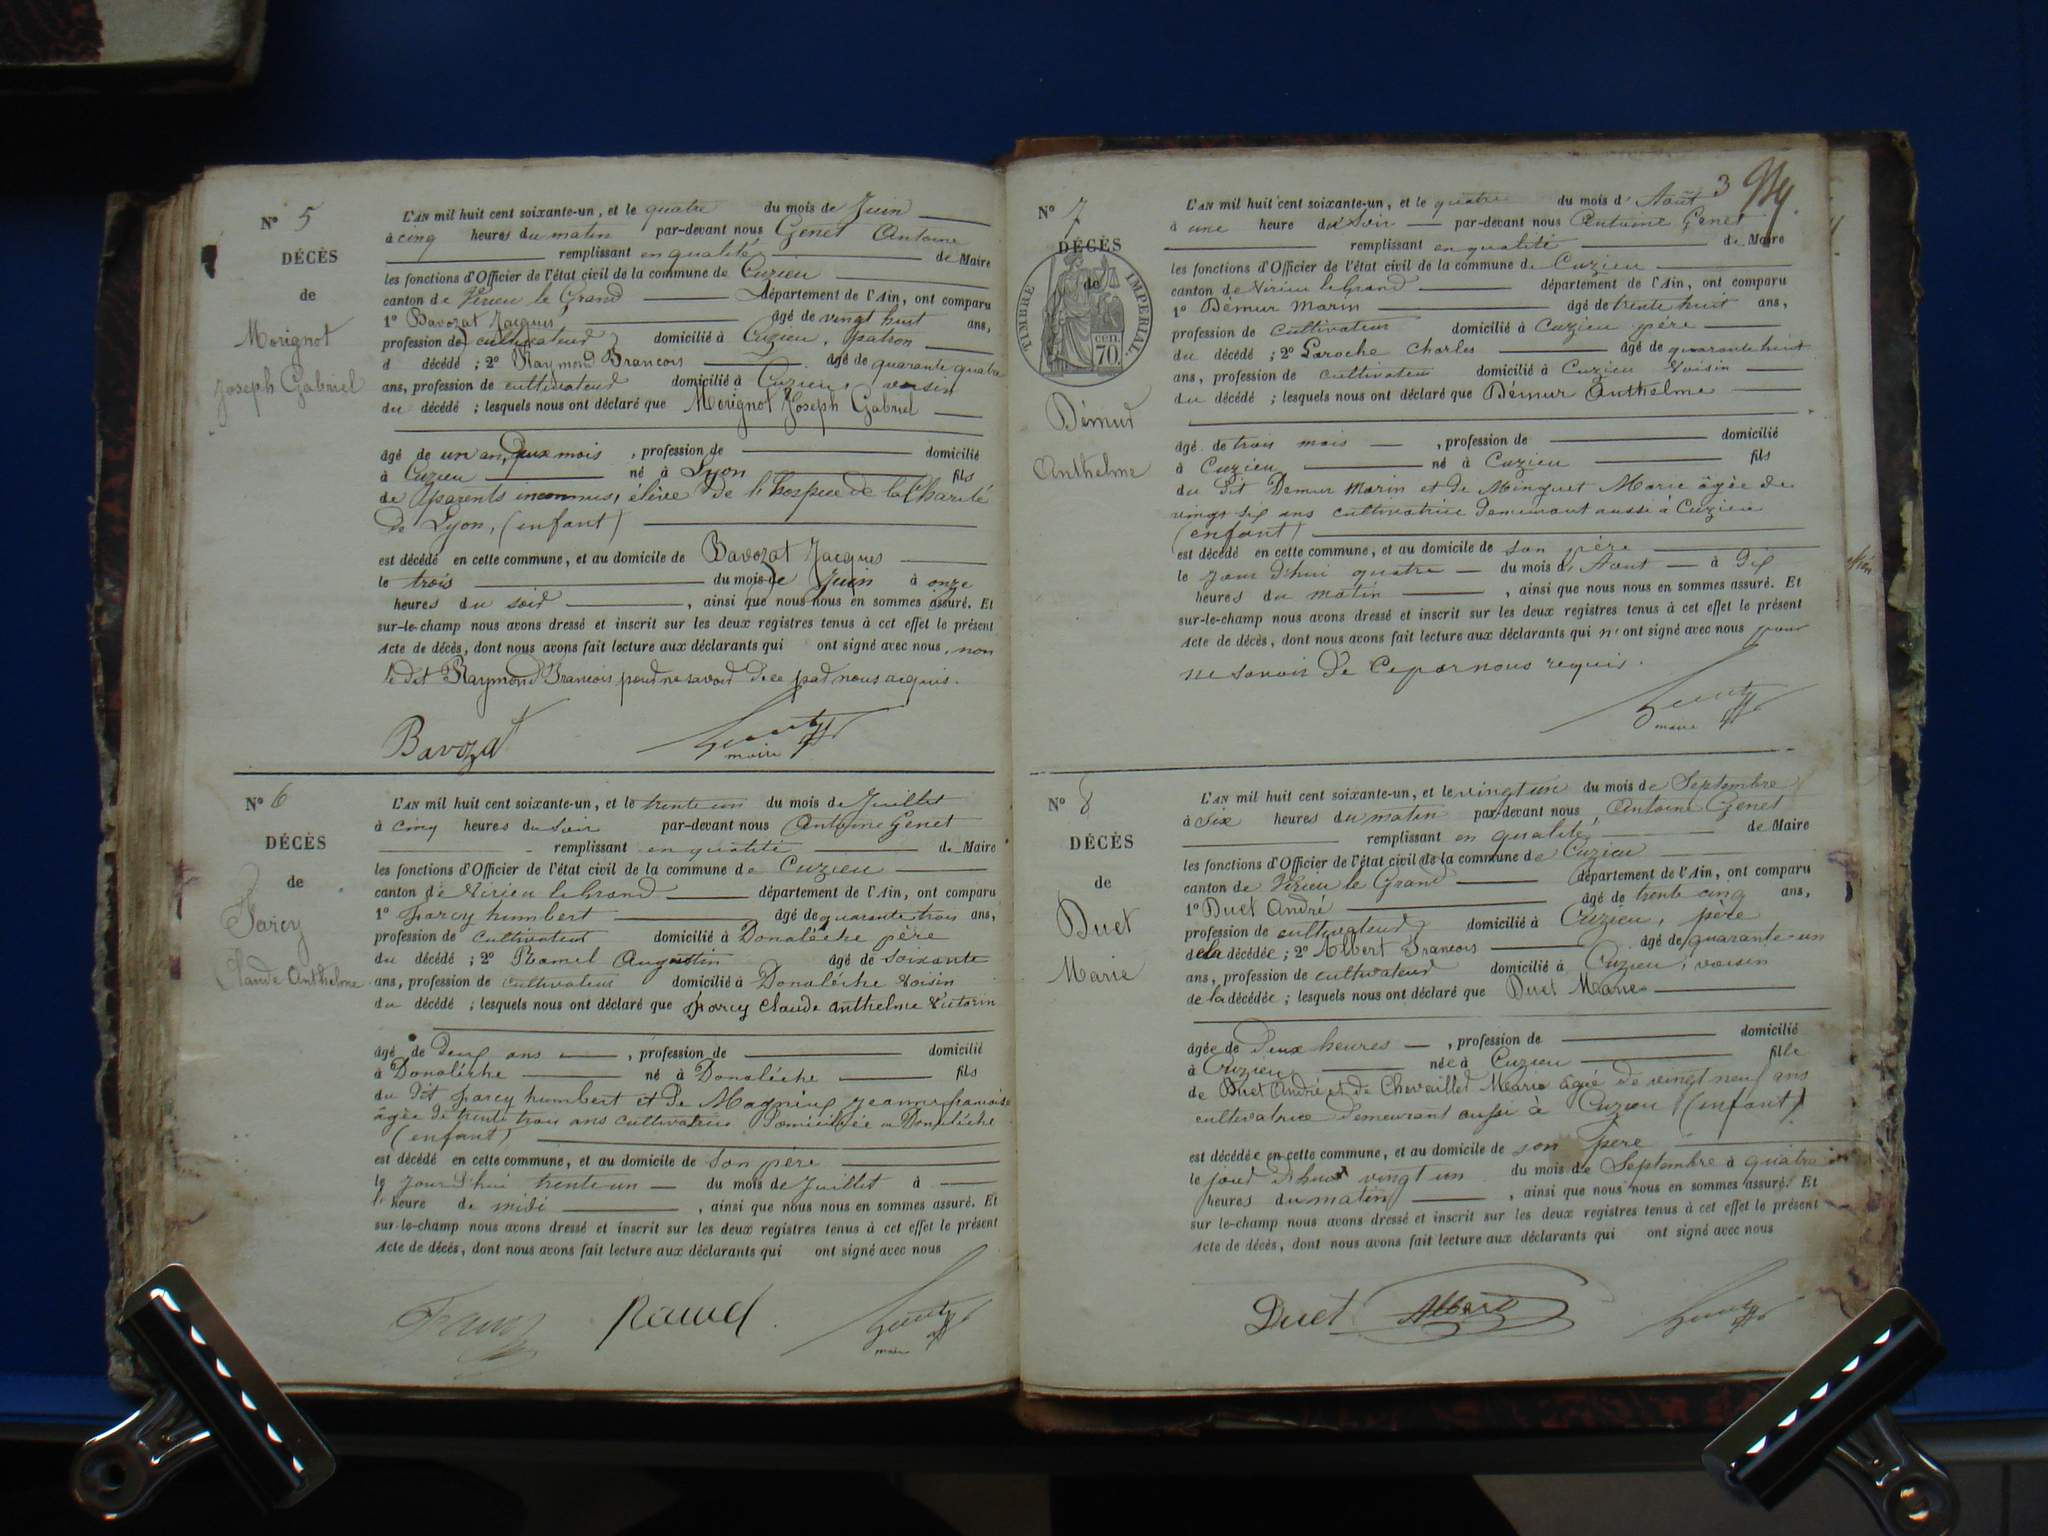 N° 5
DÉCÈS
de
Morignot
Joseph Gabriel
L'AN mil huit cent soixante-un, et le quatre du mois de Juin
à cinq heures du matin par-devant nous Genet Antoine
remplissant en qualité de Maire
les fonctions d'Officier de l'état civil de la commune de Cuzieu
canton de Virieu le Grand département de l'Ain, ont comparu
1° Bavozat Jacques âgé de vingt huit ans,
profession de cultivateur domicilié à Cuzieu, patron
d décédé ; 2° Raymond Francois âgé de quarante quatre
ans, profession de cultivateur domicilié à Cuzieu, voisin
du décédé ; lesquels nous ont déclaré que Morignot Joseph Gabriel
âgé de un an, deux mois , profession de domicilié
à Cuzieu né à Lyon fils
de parents inconnus, élève de l'hospice de la Charité
de Lyon, (enfant)
est décédé en cette commune, et au domicile de Bavozat Jacques
le trois du mois de Juin à onze
heures du soir , ainsi que nous nous en sommes assuré. Et
sur-le-champ nous avons dressé et inscrit sur les deux registres tenus à cet effet le présent
Acte de décès, dont nous avons fait lecture aux déclarants qui ont signé avec nous, non
le dit Raymond Francois pour ne savoir de ce par nous requis.
Bavozat
maire
N° 6
DÉCÈS
de
Farcy
Claude Anthelme
L'AN mil huit cent soixante-un, et le trente un du mois de Juillet
à cinq heures du soir par-devant nous Antoine Genet
remplissant en qualité de Maire
les fonctions d'Officier de l'état civil de la commune de Cuzieu
canton de Virieu le Grand département de l'Ain, ont comparu
1° Farcy humbert âgé de quarante trois ans,
profession de cultivateur domicilié à Donalèche père
du décédé ; 2° Ramel Augustin âgé de soixante
ans, profession de cultivateur domicilié à Donalèche voisin
du décédé ; lesquels nous ont déclaré que farcy Claude Anthelme Victorin
âgé de deux ans , profession de domicilié
à Donalèche né à Donalèche fils
du dit farcy humbert et de Magnieu jeanne francoise
âgée de trente trois ans cultivatrice domiciliée a Donalèche
(enfant)
est décédé en cette commune, et au domicile de son père
le jourd'hui trente un du mois de Juillet à
l'heure de midi , ainsi que nous nous en sommes assuré. Et
sur-le-champ nous avons dressé et inscrit sur les deux registres tenus à cet effet le présent
Acte de décès, dont nous avons fait lecture aux déclarants qui ont signé avec nous
Ramel
maire
3
N° 7
DÉCÈS
de
TIMBRE IMPÉRIAL
CEN. 70
Démur
Anthelme
L'AN mil huit cent soixante-un, et le quatre du mois d'Août
à une heure du Soir par-devant nous Antoine Genet
remplissant en qualité de Maire
les fonctions d'Officier de l'état civil de la commune de Cuzieu
canton de Virieu le Grand département de l'Ain, ont comparu
1° Démur Marin âgé de trente huit ans,
profession de cultivateur domicilié à Cuzieu père
du décédé ; 2° Laroche Charles âgé de quarante huit
ans, profession de cultivateur domicilié à Cuzieu voisin
du décédé ; lesquels nous ont déclaré que Démur Anthelme
âgé de trois mois , profession de domicilié
à Cuzieu né à Cuzieu fils
du dit Demur Marin et de Minguet Marie âgée de
vingt six ans cultivatrice demeurant aussi à Cuzieu
(enfant)
est décédé en cette commune, et au domicile de son père
le jour d'hui quatre du mois d'Aout à dix
heures du matin , ainsi que nous nous en sommes assuré. Et
sur-le-champ nous avons dressé et inscrit sur les deux registres tenus à cet effet le présent
Acte de décès, dont nous avons fait lecture aux déclarants qui n'ont signé avec nous pour
ne savoir de ce par nous requis.
maire
N° 8
DÉCÈS
de
Duet
Marie
L'AN mil huit cent soixante-un, et le vingt un du mois de Septembre
à six heures du matin par-devant nous Antoine Genet
remplissant en qualité de Maire
les fonctions d'Officier de l'état civil de la commune de Cuzieu
canton de Virieu le Grand département de l'Ain, ont comparu
1° Duet André âgé de trente cinq ans,
profession de cultivateur domicilié à Cuzieu, père
de la décédée ; 2° Albert Francois âgé de quarante-un
ans, profession de cultivateur domicilié à Cuzieu, voisin
de la décédée ; lesquels nous ont déclaré que Duet Marie
âgée de deux heures , profession de domicilié
à Cuzieu née à Cuzieu fille
de Duet André et de Chevaillet Marie âgée de vingt neuf ans
cultivatrice demeurant aussi à Cuzieu (enfant)
est décédée en cette commune, et au domicile de son père
le jour d'hui vingt un du mois de Septembre à quatre
heures du matin , ainsi que nous nous en sommes assuré. Et
sur le-champ nous avons dressé et inscrit sur les deux registres tenus à cet effet le présent
Acte de décès, dont nous avons fait lecture aux déclarants qui ont signé avec nous
Duet Albert